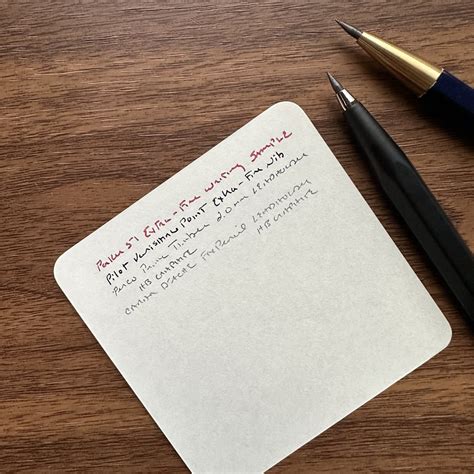 Parker 51 Extra-Fine Writing Sample
Pilot Vanishing Point Extra-Fine Nib
Prime Timber 2.0mm Leadholder
HB
Caran D'Ache Fixpencil Leadholder
HB